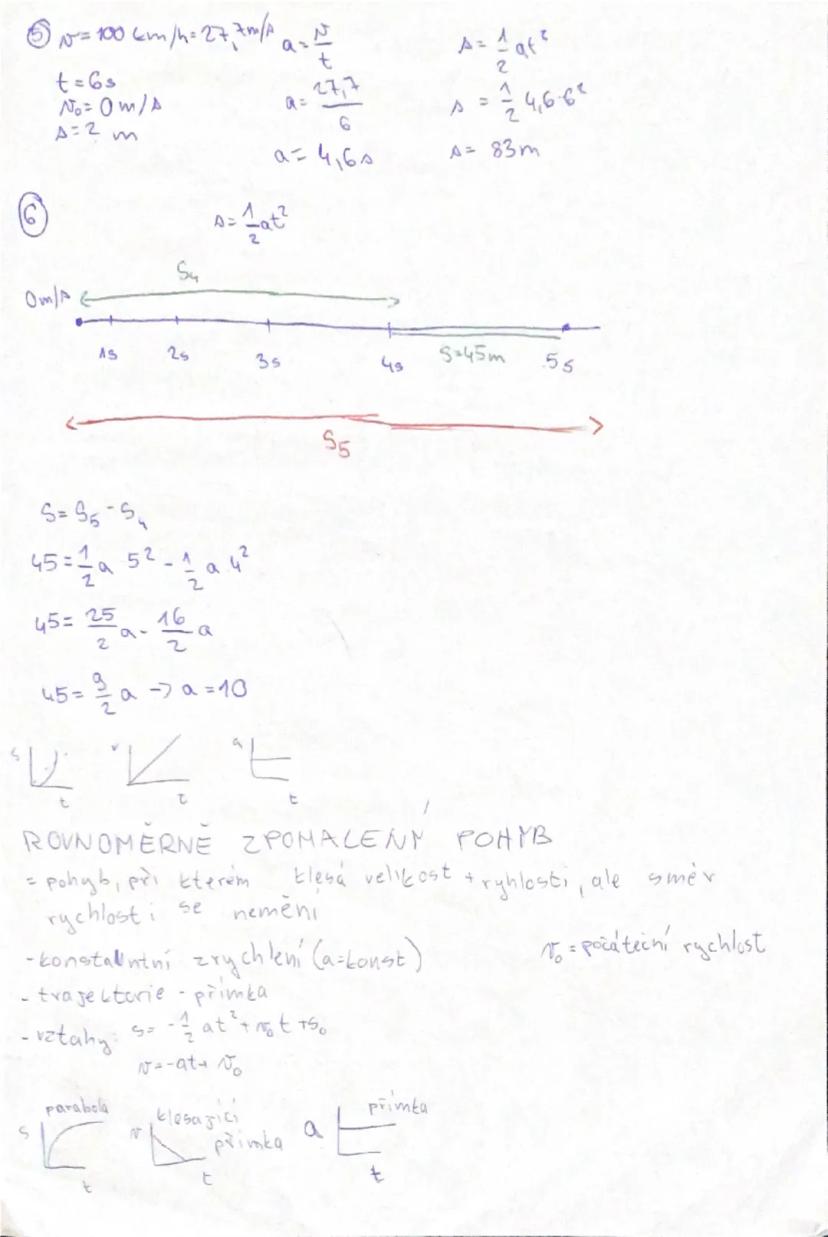 5 v = 100 km/h = 27,7 m/s a = v/t s = 1/2 at²
t = 6s a = 27,7/6 s = 1/2 4,6·6²
v₀ = 0 m/s
s = ? m a = 4,6 s s = 83 m
6 s = 1/2 at²
S₄
0 m/s
1s 2s 3s 4s S=45m 5s
S₅
S = S₅ - S₄
45 = 1/2 a 5² - 1/2 a 4²
45 = 25/2 a - 16/2 a
45 = 9/2 a -> a = 10
s v a
t t t
ROVNOMĚRNĚ ZPOMALENÝ POHYB
= pohyb, při kterém klesá velikost + ryhlosti, ale směr
rychlosti se nemění
v₀ = počáteční rychlost
- konstalntní zrychlení (a=konst)
- trajektorie - přímka
- vztahy: s = -1/2 at² + v₀t + s₀
v = -at + v₀
parabola klesající přímka
s v přímka a
t t t